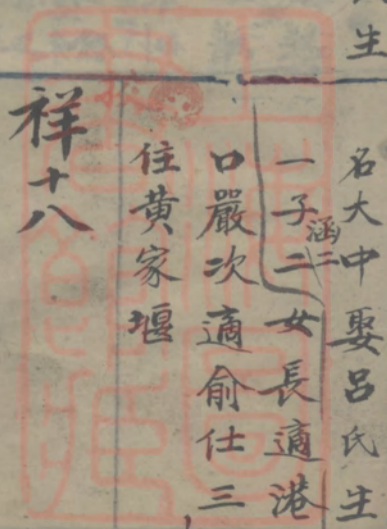 生
名大中娶呂氏生
一子涵二二女長適港
口嚴次適俞仕三
住黃家堰
祥十八